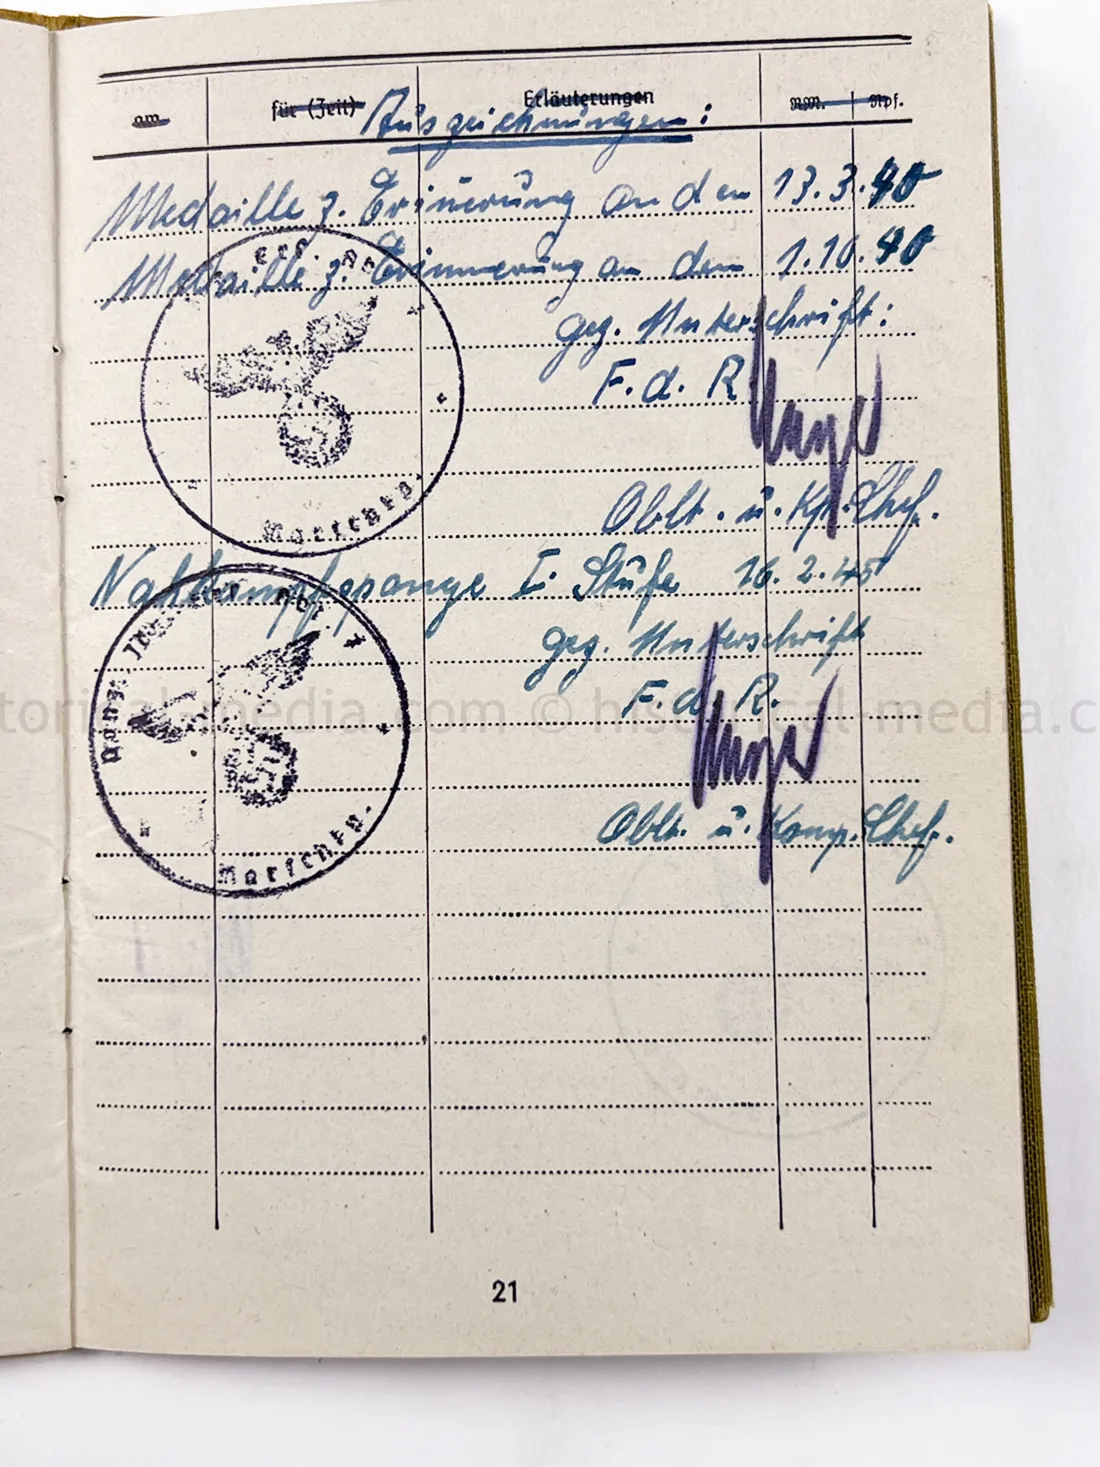 am für (Zeit) Erläuterungen RM. Rpf.
Auszeichnungen:
Medaille z. Erinnerung an den 13.3.40
Medaille z. Erinnerung an den 1.10.40
gez. Unterschrift:
F. d. R
Oblt. u. Kp. Chef.
Marschkp.
Nahkampfspange I. Stufe 16.2.45
gez. Unterschrift
F. d. R.
Oblt. u. Komp. Chef.
Marschkp.
historical-media.com © historical-media.c
21